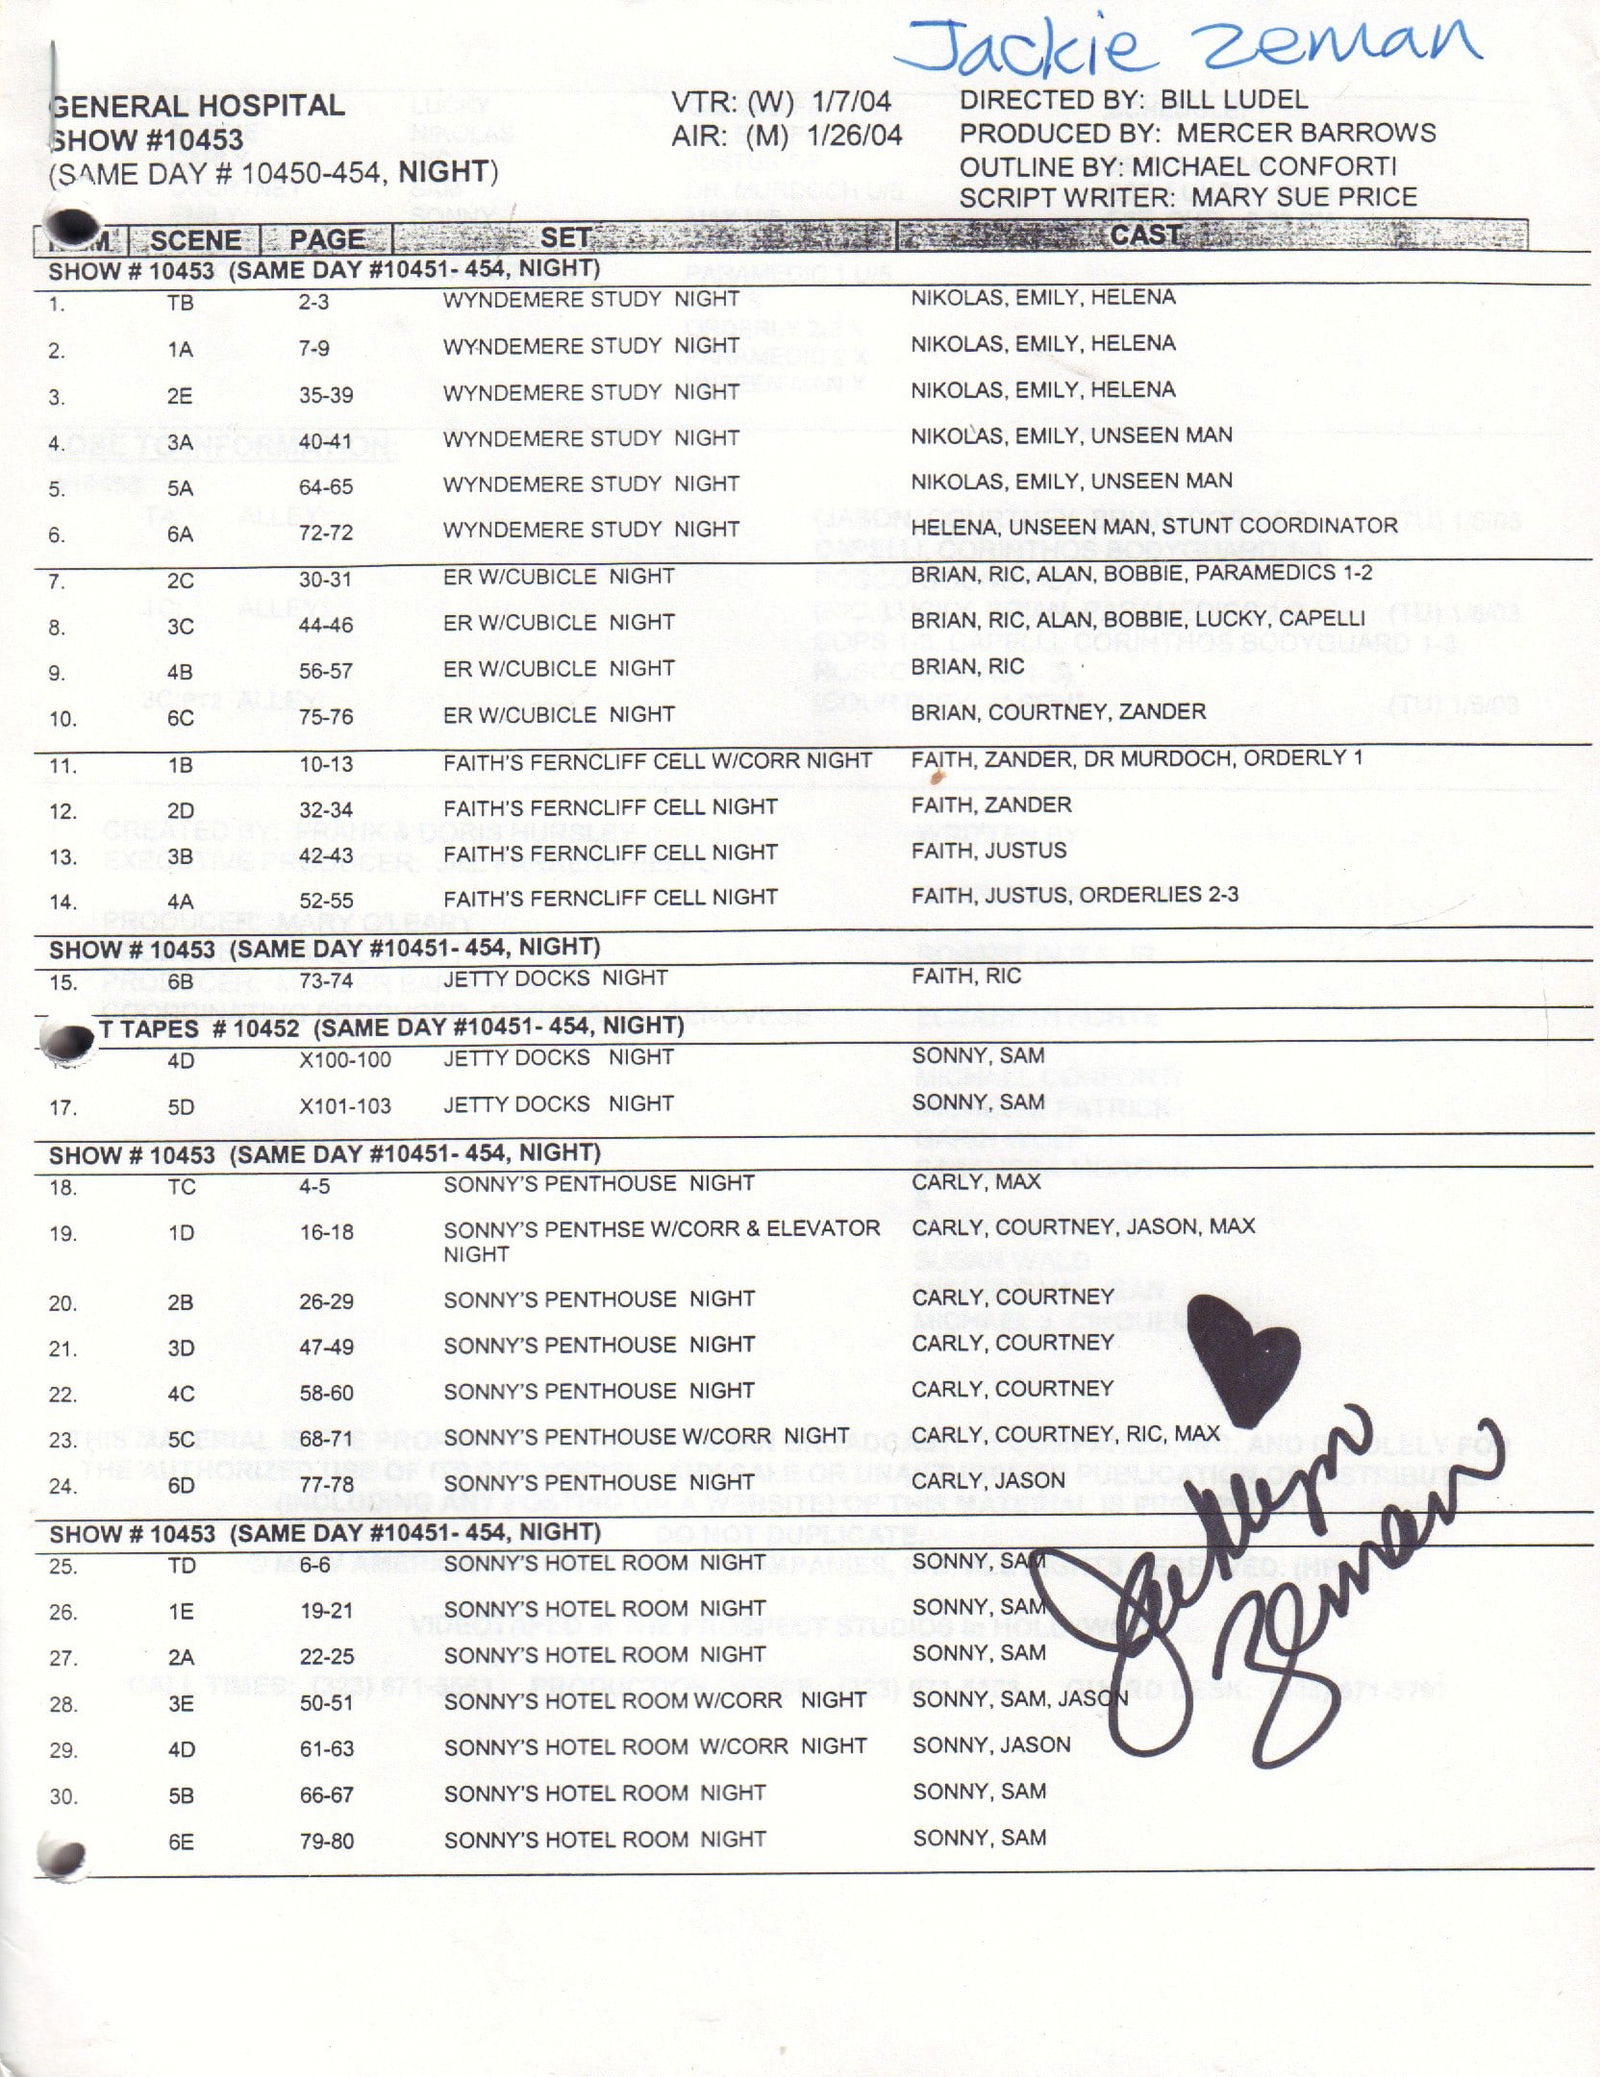 Jackie Zeman
GENERAL HOSPITAL VTR: (W) 1/7/04 DIRECTED BY: BILL LUDEL
SHOW #10453 AIR: (M) 1/26/04 PRODUCED BY: MERCER BARROWS
(SAME DAY # 10450-454, NIGHT) OUTLINE BY: MICHAEL CONFORTI
SCRIPT WRITER: MARY SUE PRICE
SCENE PAGE SET CAST
SHOW # 10453 (SAME DAY #10451- 454, NIGHT)
1. TB 2-3 WYNDEMERE STUDY NIGHT NIKOLAS, EMILY, HELENA
2. 1A 7-9 WYNDEMERE STUDY NIGHT NIKOLAS, EMILY, HELENA
3. 2E 35-39 WYNDEMERE STUDY NIGHT NIKOLAS, EMILY, HELENA
4. 3A 40-41 WYNDEMERE STUDY NIGHT NIKOLAS, EMILY, UNSEEN MAN
5. 5A 64-65 WYNDEMERE STUDY NIGHT NIKOLAS, EMILY, UNSEEN MAN
6. 6A 72-72 WYNDEMERE STUDY NIGHT HELENA, UNSEEN MAN, STUNT COORDINATOR
7. 2C 30-31 ER W/CUBICLE NIGHT BRIAN, RIC, ALAN, BOBBIE, PARAMEDICS 1-2
8. 3C 44-46 ER W/CUBICLE NIGHT BRIAN, RIC, ALAN, BOBBIE, LUCKY, CAPELLI
9. 4B 56-57 ER W/CUBICLE NIGHT BRIAN, RIC
10. 6C 75-76 ER W/CUBICLE NIGHT BRIAN, COURTNEY, ZANDER
11. 1B 10-13 FAITH'S FERNCLIFF CELL W/CORR NIGHT FAITH, ZANDER, DR MURDOCH, ORDERLY 1
12. 2D 32-34 FAITH'S FERNCLIFF CELL NIGHT FAITH, ZANDER
13. 3B 42-43 FAITH'S FERNCLIFF CELL NIGHT FAITH, JUSTUS
14. 4A 52-55 FAITH'S FERNCLIFF CELL NIGHT FAITH, JUSTUS, ORDERLIES 2-3
SHOW # 10453 (SAME DAY #10451- 454, NIGHT)
15. 6B 73-74 JETTY DOCKS NIGHT FAITH, RIC
T TAPES # 10452 (SAME DAY #10451- 454, NIGHT)
4D X100-100 JETTY DOCKS NIGHT SONNY, SAM
17. 5D X101-103 JETTY DOCKS NIGHT SONNY, SAM
SHOW # 10453 (SAME DAY #10451- 454, NIGHT)
18. TC 4-5 SONNY'S PENTHOUSE NIGHT CARLY, MAX
19. 1D 16-18 SONNY'S PENTHSE W/CORR & ELEVATOR CARLY, COURTNEY, JASON, MAX
NIGHT
20. 2B 26-29 SONNY'S PENTHOUSE NIGHT CARLY, COURTNEY
21. 3D 47-49 SONNY'S PENTHOUSE NIGHT CARLY, COURTNEY
22. 4C 58-60 SONNY'S PENTHOUSE NIGHT CARLY, COURTNEY
23. 5C 68-71 SONNY'S PENTHOUSE W/CORR NIGHT CARLY, COURTNEY, RIC, MAX
24. 6D 77-78 SONNY'S PENTHOUSE NIGHT CARLY, JASON
SHOW # 10453 (SAME DAY #10451- 454, NIGHT)
25. TD 6-6 SONNY'S HOTEL ROOM NIGHT SONNY, SAM
26. 1E 19-21 SONNY'S HOTEL ROOM NIGHT SONNY, SAM
27. 2A 22-25 SONNY'S HOTEL ROOM NIGHT SONNY, SAM
28. 3E 50-51 SONNY'S HOTEL ROOM W/CORR NIGHT SONNY, SAM, JASON
29. 4D 61-63 SONNY'S HOTEL ROOM W/CORR NIGHT SONNY, JASON
30. 5B 66-67 SONNY'S HOTEL ROOM NIGHT SONNY, SAM
6E 79-80 SONNY'S HOTEL ROOM NIGHT SONNY, SAM
Jacklyn
Zeman